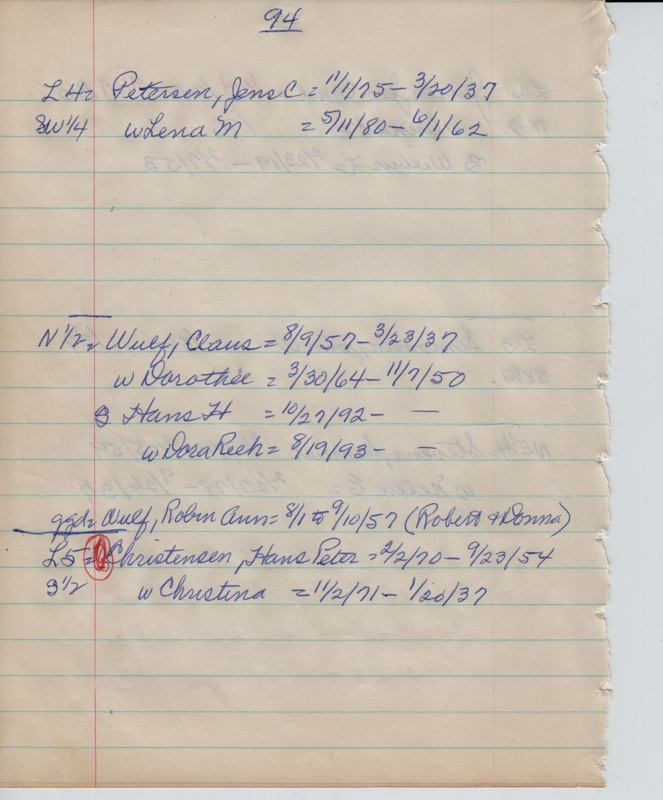 94
L4= Petersen, Jens C = 11/1/75 - 3/20/37
SW 1/4 w Lena M = 5/11/80 - 6/1/62
N 1/2 = Wulf, Claus = 8/9/57 - 3/23/37
w Dorothée = 3/30/64 - 11/7/50
S Hans H = 10/27/92 - —
w Dora Reeh = 8/19/93 - —
ggd= Wulf, Robin Ann = 8/1 to 9/10/57 (Robert & Donna)
L5= Christensen, Hans Peter = 2/2/70 - 9/23/54
S 1/2 w Christina = 11/2/71 - 1/20/37